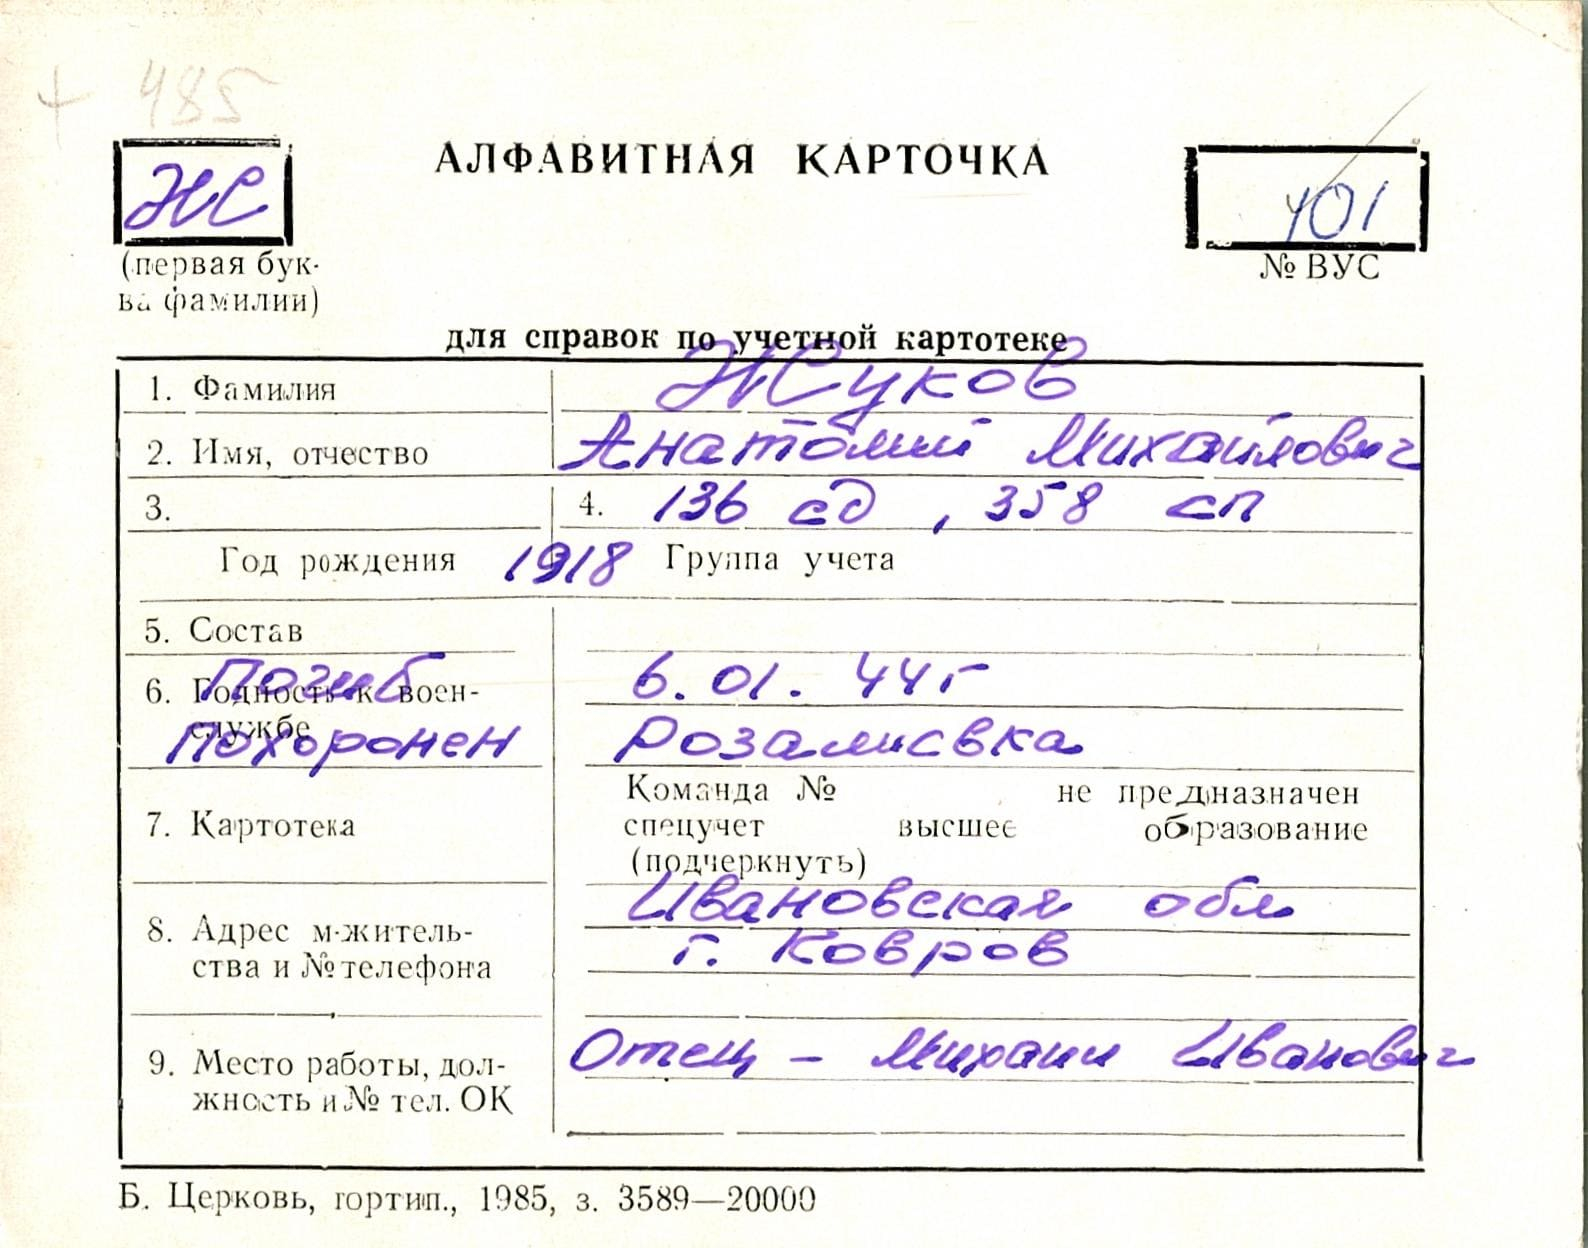 + 485
АЛФАВИТНАЯ КАРТОЧКА
Ж
401
(первая бук-
ва фамилии)
№ ВУС
для справок по учетной картотеке
1. Фамилия Жуков
2. Имя, отчество Анатолий Михайлович
3. 4. 136 сд, 358 сп
Год рождения 1918 Группа учета
5. Состав
Погиб 6.01.44г
6. Годность к воен-
службе
Похоронен Розалиевка
Команда № не предназначен
7. Картотека спецучет высшее образование
(подчеркнуть)
Ивановская обл
8. Адрес м-житель-
г. Ковров
ства и № телефона
Отец - Михаил Иванович
9. Место работы, дол-
жность и № тел. ОК
Б. Церковь, гортип., 1985, з. 3589—20000